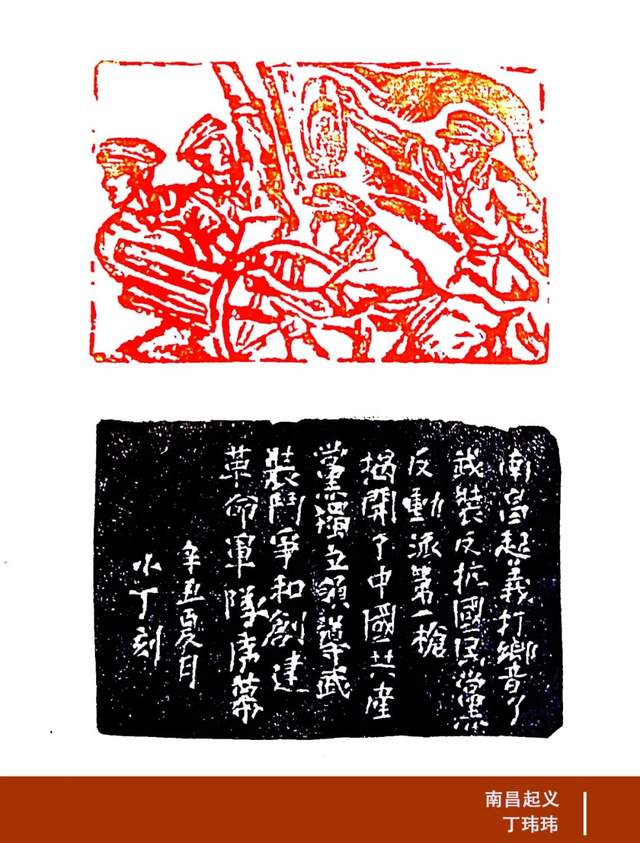 南昌起義打響了
武裝反抗國民黨
反動派第一槍
揭開了中國共產
黨獨立領導武
裝鬥爭和創建
革命軍隊序幕
辛丑夏日
小丁刻
南昌起义
丁玮玮